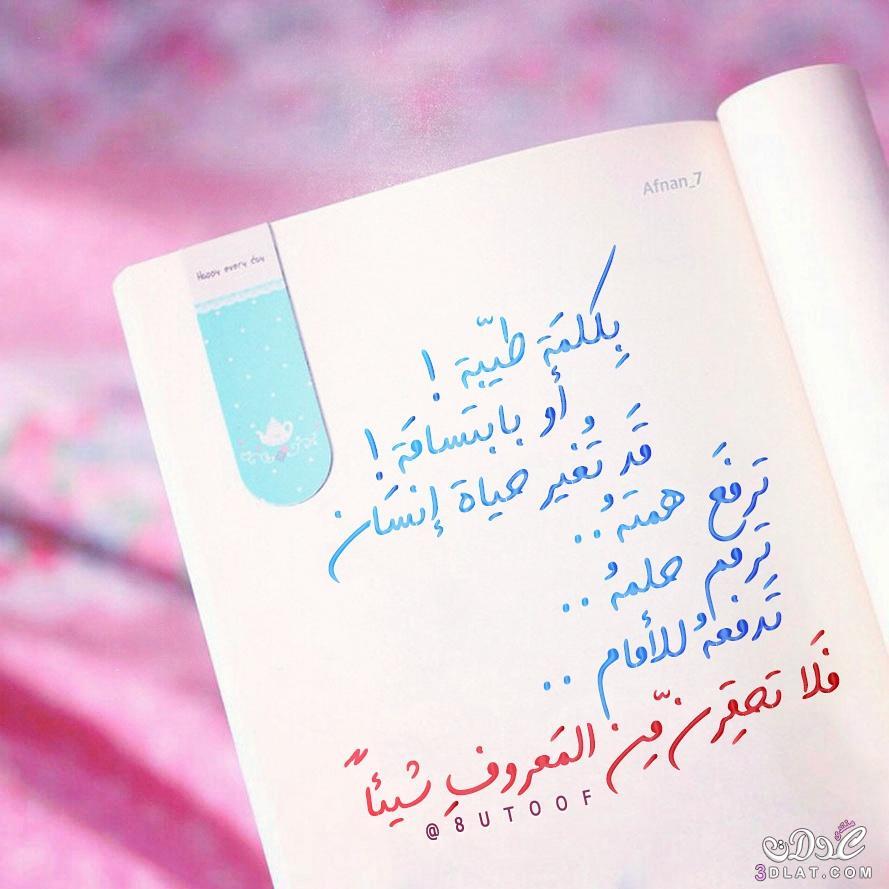 Afnan_7
Happy every day
بِكلمَة طيّبة !
أو بابتسامَة !
قَد تُغير حياة إنسَان
ترفعَ همتهُ..
تَرمم حلمهُ ..
تَدفعهُ للأمام ..
فَلا تحقِرن مّن المَعروفِ شيئاً
@8UTOOF
منتدى عدلات
3DLAT.COM